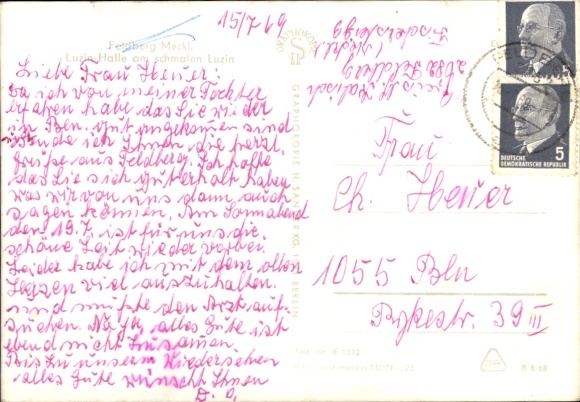 15/7 69
Feldberg Meckl.
Luzin-Halle am schmalen Luzin
Liebe Frau Heuer:
Da ich von meiner Tochter
erfaren habe das Sie wieder
in Bln. gut angekommen sind
sende ich Ihnen die herzl.
Grüse aus Feldberg. Ich hoffe
das Sie sich gut erhalt haben
was wir von uns dann auch
sagen können. Am Sonnabend
den 19.7. ist für uns die
schöne Zeit wieder vorbei.
Leider habe ich mit dem alten
viel auszuhalten.
und mußte den Arzt auf-
suchen. Na ja, alles Gute ist
ebend nicht zusamen.
Bis zu unserm Wiedersehen
alles Gute wünscht Ihnen
D. O.
2082 Feldberg
(Meckl.)
DEUTSCHE
DEMOKRATISCHE REPUBLIK
5
Frau
Ch. Heuer
1055 Bln
Rykestr. 39 III
BERLIN
R 6/68